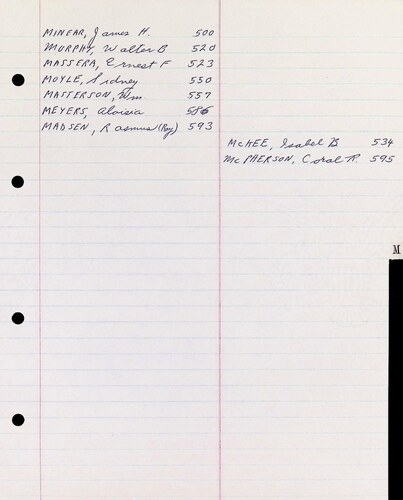 MINEAR, James H. 500
MURPHY, Walter B 520
MASSERA, Ernest F 523
MOYLE, Sidney 530
MATTERSON, Wm. 557
MEYERS, Aloisia 586
MADSEN, Rasmus (Ray) 593
McKEE, Isabel B 534
McPHERSON, Coral R. 595
M